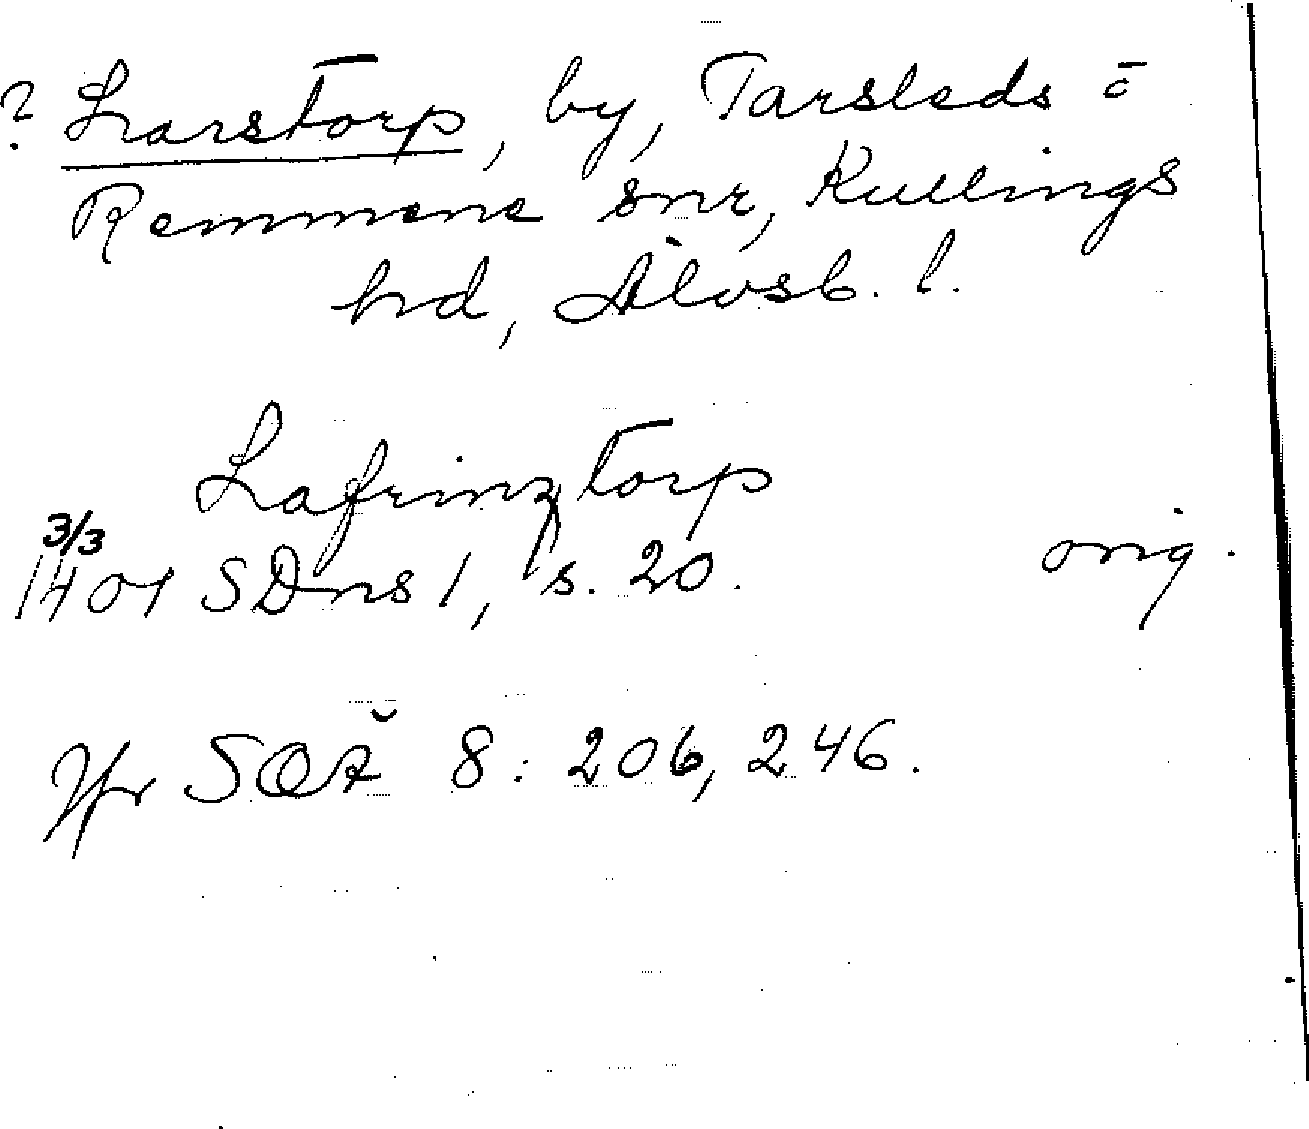 ? Larstorp, by, Tarsleds o
Remmene snr, Kullings
hd, Älvsb. l.
Lafrinztorp
3/3
1401 SDns 1, s. 20. orig.
Jfr SOÄ 8: 206, 246.